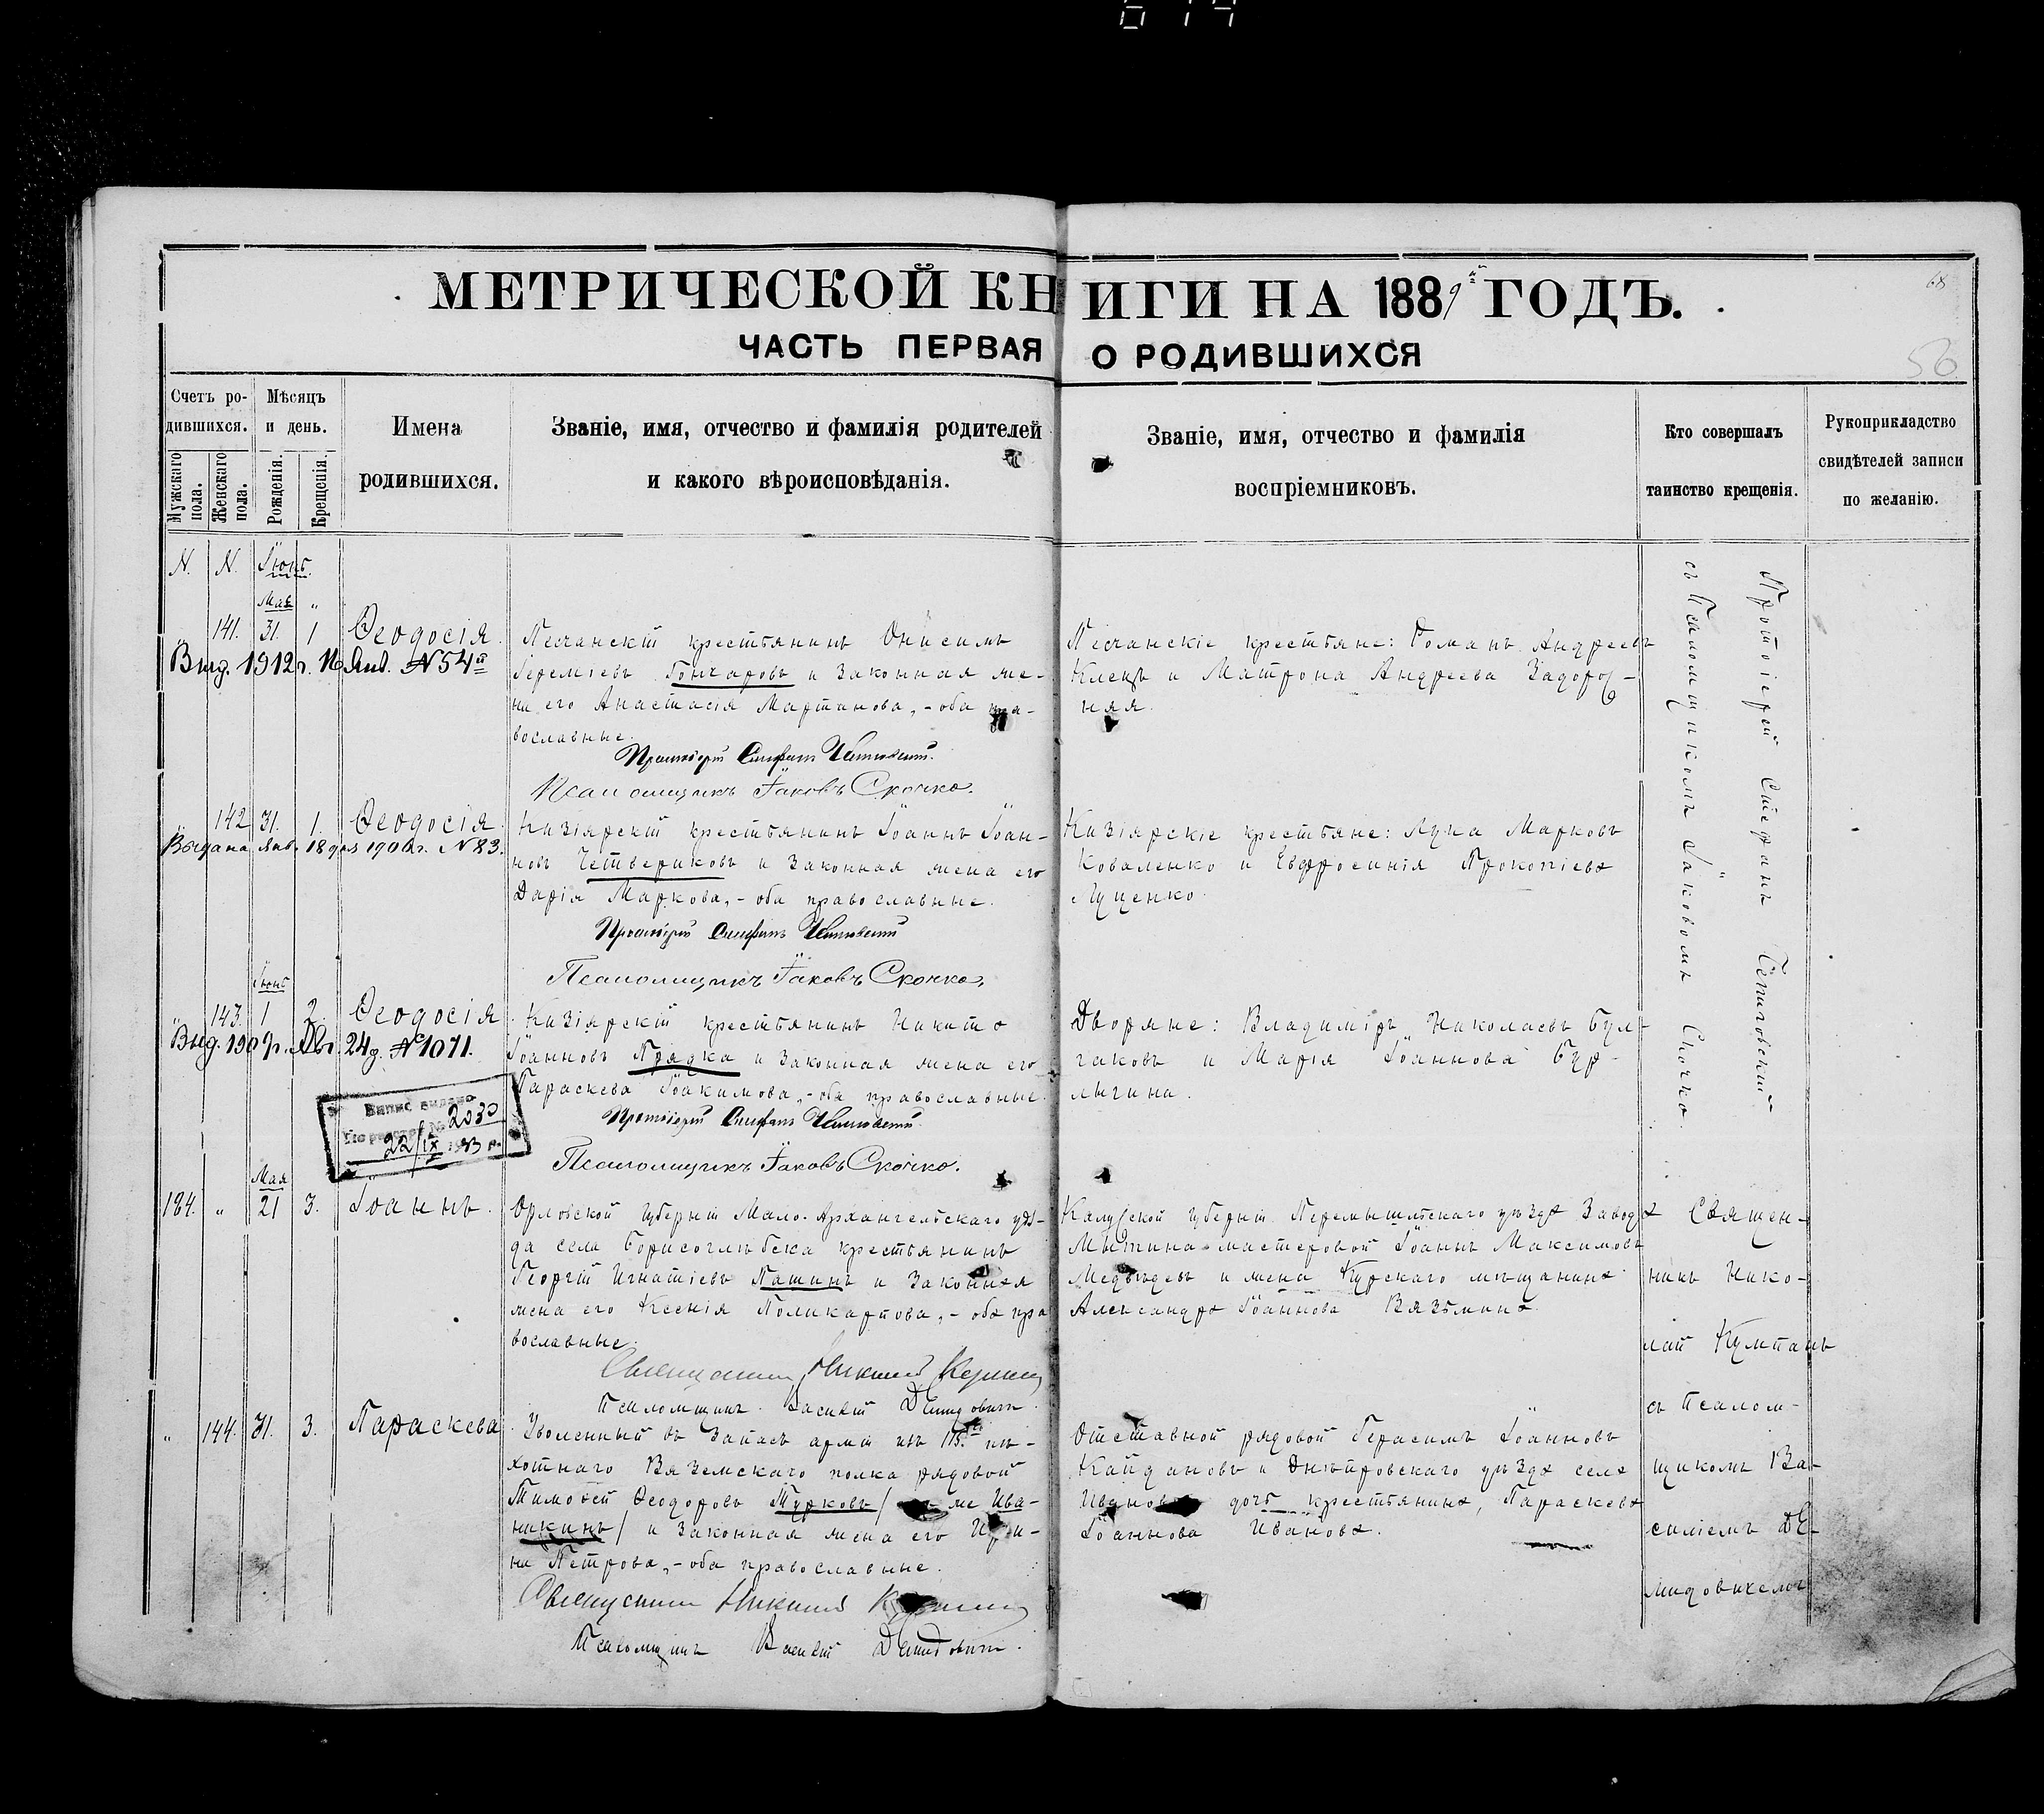 МЕТРИЧЕСКОЙ КНИГИ НА 1889й ГОДЪ.
ЧАСТЬ ПЕРВАЯ О РОДИВШИХСЯ
68
56
Счетъ родившихся.
Мужскаго пола.
Женскаго пола.
Мѣсяцъ и день.
Рожденія.
Крещенія.
Имена родившихся.
Званіе, имя, отчество и фамилія родителей
и какого вѣроисповѣданія.
Званіе, имя, отчество и фамилія
воспріемниковъ.
Кто совершалъ
таинство крещенія.
Рукоприкладство
свидѣтелей записи
по желанію.
N. N. Іюнь.
Мая "
" 141. 31. 1 Ѳеодосія.
Выд. 1912 г. 16 Янв. № 54й
Песчанскій крестьянинъ Онисимъ
Іереміевъ Гончаровъ и законная же-
на его Анастасія Мартинова, - оба пра-
вославные.
Протоіерей Стефанъ
Псаломщикъ Іаковъ Скочко.
Песчанскіе крестьяне: Романъ Андреевъ
Клецъ и Матрона Андреева Задорож-
няя.
Протоіерей Стефанъ
съ Псаломщикомъ Іаковомъ Скочко.
" 142 31. 1. Ѳеодосія.
Выдана Янв. 18 дня 1906 г. N 83.
Кизіярскій крестьянинъ Іоаннъ Іоан-
новъ Четвериковъ и законная жена его
Дарія Маркова, - оба православные.
Протоіерей Стефанъ
Псаломщикъ Іаковъ Скочко.
Кизіярскіе крестьяне: Лука Марковъ
Коваленко и Евфросинія Прокопіева
Луценко.
Іюнь
" 143. 1 2. Ѳеодосія
Выд. 1909 г. Авг. 24 д. № 1071.
Кизіярскій крестьянинъ Никита
Іоанновъ Прядка и законная жена его
Параскева Іоакимова, - оба православные.
Протоіерей Стефанъ
Псаломщикъ Іаковъ Скочко.
Дворяне: Владиміръ Николаевъ Бул-
гаковъ и Марія Іоаннова Бур-
лыгина.
Випис видано
По реєстру № 2030
22/IX 1933 р.
Мая
184. " 21 3. Іоаннъ.
Орловской губерніи Мало-Архангельскаго уѣз-
да села Борисоглѣбска крестьянинъ
Георгій Игнатіевъ Пашинъ и законная
жена его Ксенія Поликарпова, - оба пра
вославные.
Священникъ Николай
Псаломщикъ Василій Демидовичъ.
Калужской губерніи Перемышльскаго уѣзда Завода
Мышина мастеровой Іоаннъ Максимовъ
Медвѣдевъ и жена Курскаго мѣщанина
Александра Іоаннова Вязьмина.
Священ-
никъ Нико-
лай Кумпанъ
съ Псалом-
щикомъ Ва-
силіемъ Де-
мидовичемъ
" 144. 31. 3. Параскева
Уволенный въ запасъ арміи изъ 115го пѣ-
хотнаго Вяземскаго полка рядовой
Тимоѳей Ѳеодоровъ Турковъ / же Ива-
никинъ / и законная жена его Ири-
на Петрова, - оба православные.
Священникъ Николай
Псаломщикъ Василій Демидовичъ.
Отставной рядовой Герасимъ Іоанновъ
Кайдановъ и Днѣпровскаго уѣзда села
дочь крестьянина, Параскева
Іоаннова Иванова.